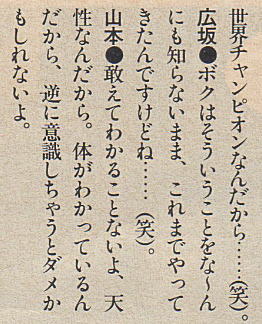 世界チャンピオンなんだから……(笑)。
広坂●ボクはそういうことをな〜ん
にも知らないまま、これまでやって
きたんですけどね……(笑)。
山本●敢えてわかることないよ、天
性なんだから。体がわかっているん
だから、逆に意識しちゃうとダメか
もしれないよ。